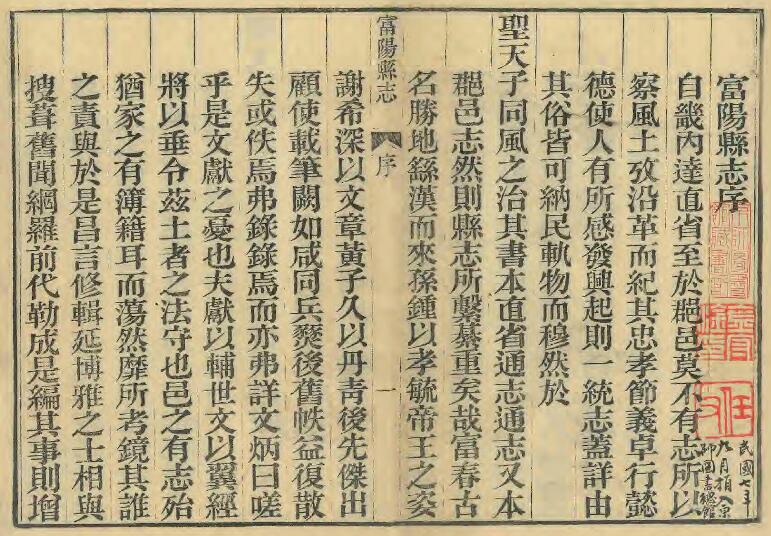 富陽縣志序
自畿内達直省至於郡邑莫不有志所以
察風土攷沿革而紀其忠孝節義卓行懿
德使人有所感發興起則一統志蓋詳由
其俗皆可納民軌物而穆然於
聖天子同風之治其書本直省通志通志又本
郡邑志然則縣志所繫綦重矣哉富春古
名勝地繇漢而來孫鍾以孝毓帝王之姿
富陽縣志 序 一
謝希深以文章黃子久以丹青後先傑出
顧使載筆闕如咸同兵燹後舊帙益復散
失或佚焉弗錄錄焉而亦弗詳文炳曰嗟
乎是文獻之憂也夫獻以輔世文以翼經
將以垂令茲土者之法守也邑之有志殆
猶家之有簿籍耳而蕩然靡所考鏡其誰
之責與於是昌言修輯延博雅之士相與
搜葺舊聞網羅前代勒成是編其事則增
民國七年
九月捐入京
師圖書總館